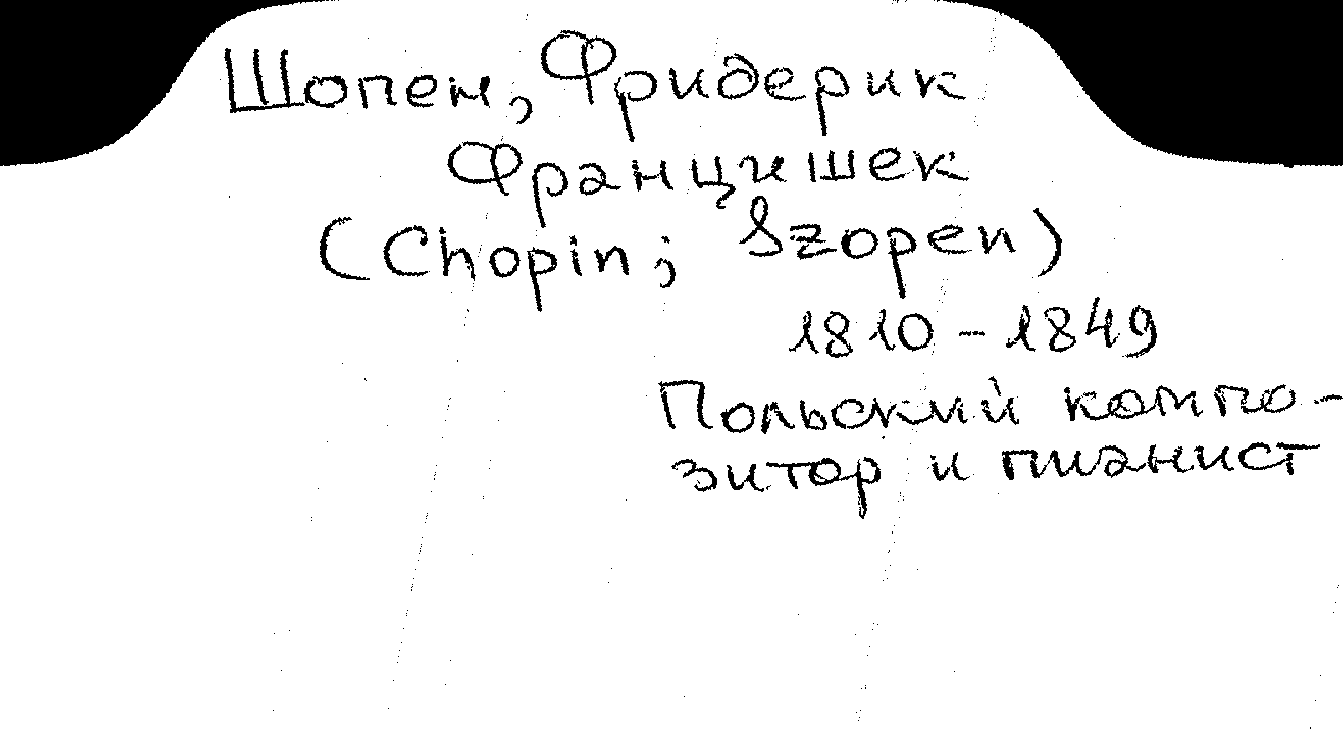 Шопен, Фридерик
Францишек
(Chopin; Szopen)
1810-1849
Польский компо-
зитор и пианист